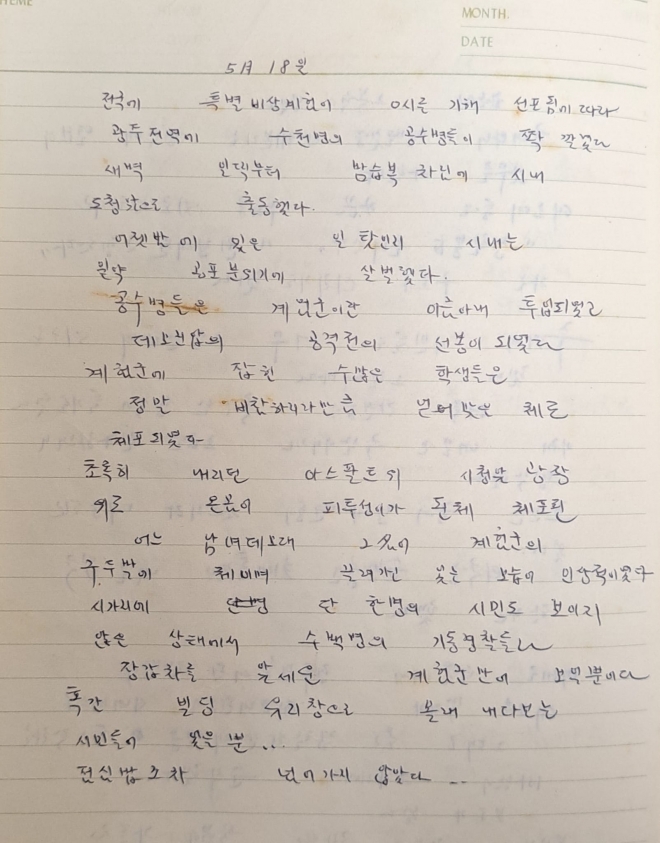 MONTH.
DATE
5月 18일
전국에 특별비상계엄이 0시를 기해 선포됨에 따라
광주전역에 수천명의 공수병들이 쫙 깔렸다
새벽 일찍부터 밤습복 차림에 시내
도청앞으로 출동했다.
어젯밤에 있은 일 탓인지 시내는
일약 공포분위기에 살벌했다.
공수병들은 계엄군이란 이름아래 투입되었고
데모진압의 공격전의 선봉이 되었다
계엄군에 잡힌 수많은 학생들은
정말 비참하리라만큼 얻어맞은 채로
체포되었다
초록히 내리던 아스팔트의 시청앞 광장
위로 온몸이 피투성이가 된체 체포된
어느 남녀데모대 2名이 계엄군의
구두발에 채이며 끌려가던 모습이 인상적이었다
시가지에 단 한명의 시민도 보이지
않은 상태에서 수백명의 기동경찰들과
장갑차를 앞세운 계엄군만이 보일뿐이다
혹간 빌딩 유리창으로 몰래 내다보는
시민들이 있을 뿐...
점심밥조차 넘어가지 않았다...